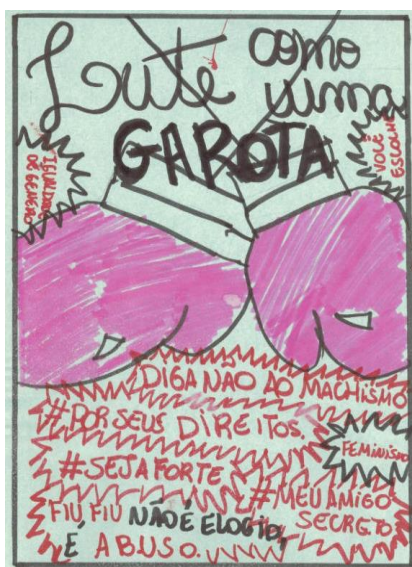 Lute como
uma
GAROTA
IGUALDADE
DE GÊNERO
VOCÊ
ESCOLHE
DIGA NAO AO MACHISMO
#POR SEUS DIREITOS.
FEMINISMO
#SEJA FORTE
#MEU AMIGO
SECRETO
FIU FIU NÃO É ELOGIO,
É ABUSO.